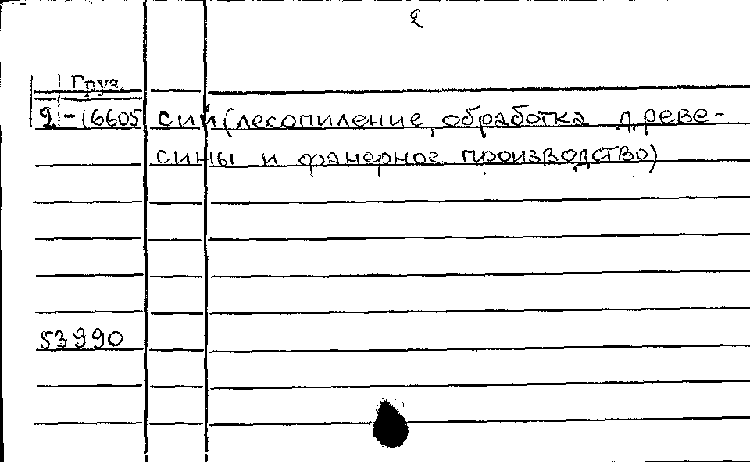 2
Груз.
2-16605 сии (лесопиление, обработка древе-
сины и фанерное производство)
53990